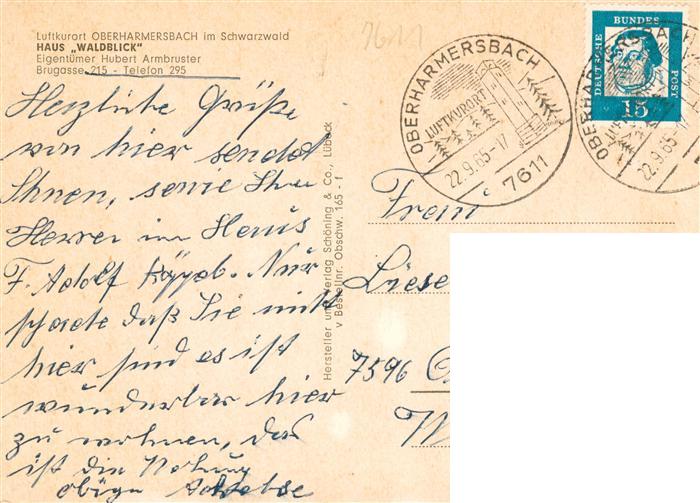 Luftkurort OBERHARMERSBACH im Schwarzwald
HAUS „WALDBLICK"
Eigentümer Hubert Armbruster
Brugasse 215 - Telefon 295
Herzliche Grüße
von hier sendet
Ihnen, sowie Ihre
Herren im Haus
F. Adolf
Nur
schade daß Sie nicht
hier sind es ist
wunderbar hier
zu wohnen, das
ist die
obige
Hersteller und Verlag Schöning & Co., Lübeck
v Bestellnr. Obschw. 165 - f
7611
OBERHARMERSBACH
LUFTKURORT
22.9.65-17
7611
DEUTSCHE BUNDES POST
15
OBERHARMERSBACH
22.9.65
Frau
Liese
7596